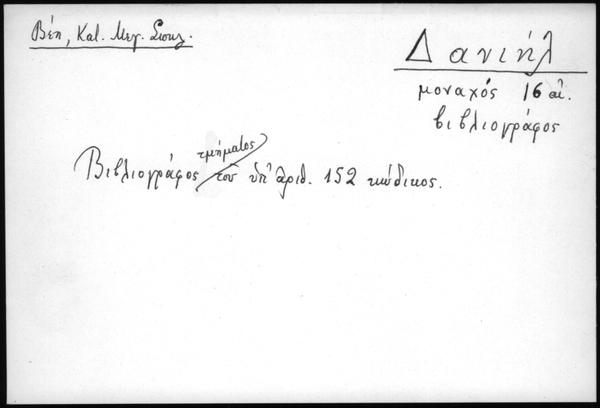 Βέη, Κατ. Μεγ. Σπηλ.
Δανιήλ
μοναχός 16 αἰ.
βιβλιογράφος
τμήματος
Βιβλιογράφος τοῦ ὑπ' ἀριθ. 152 κώδικος.